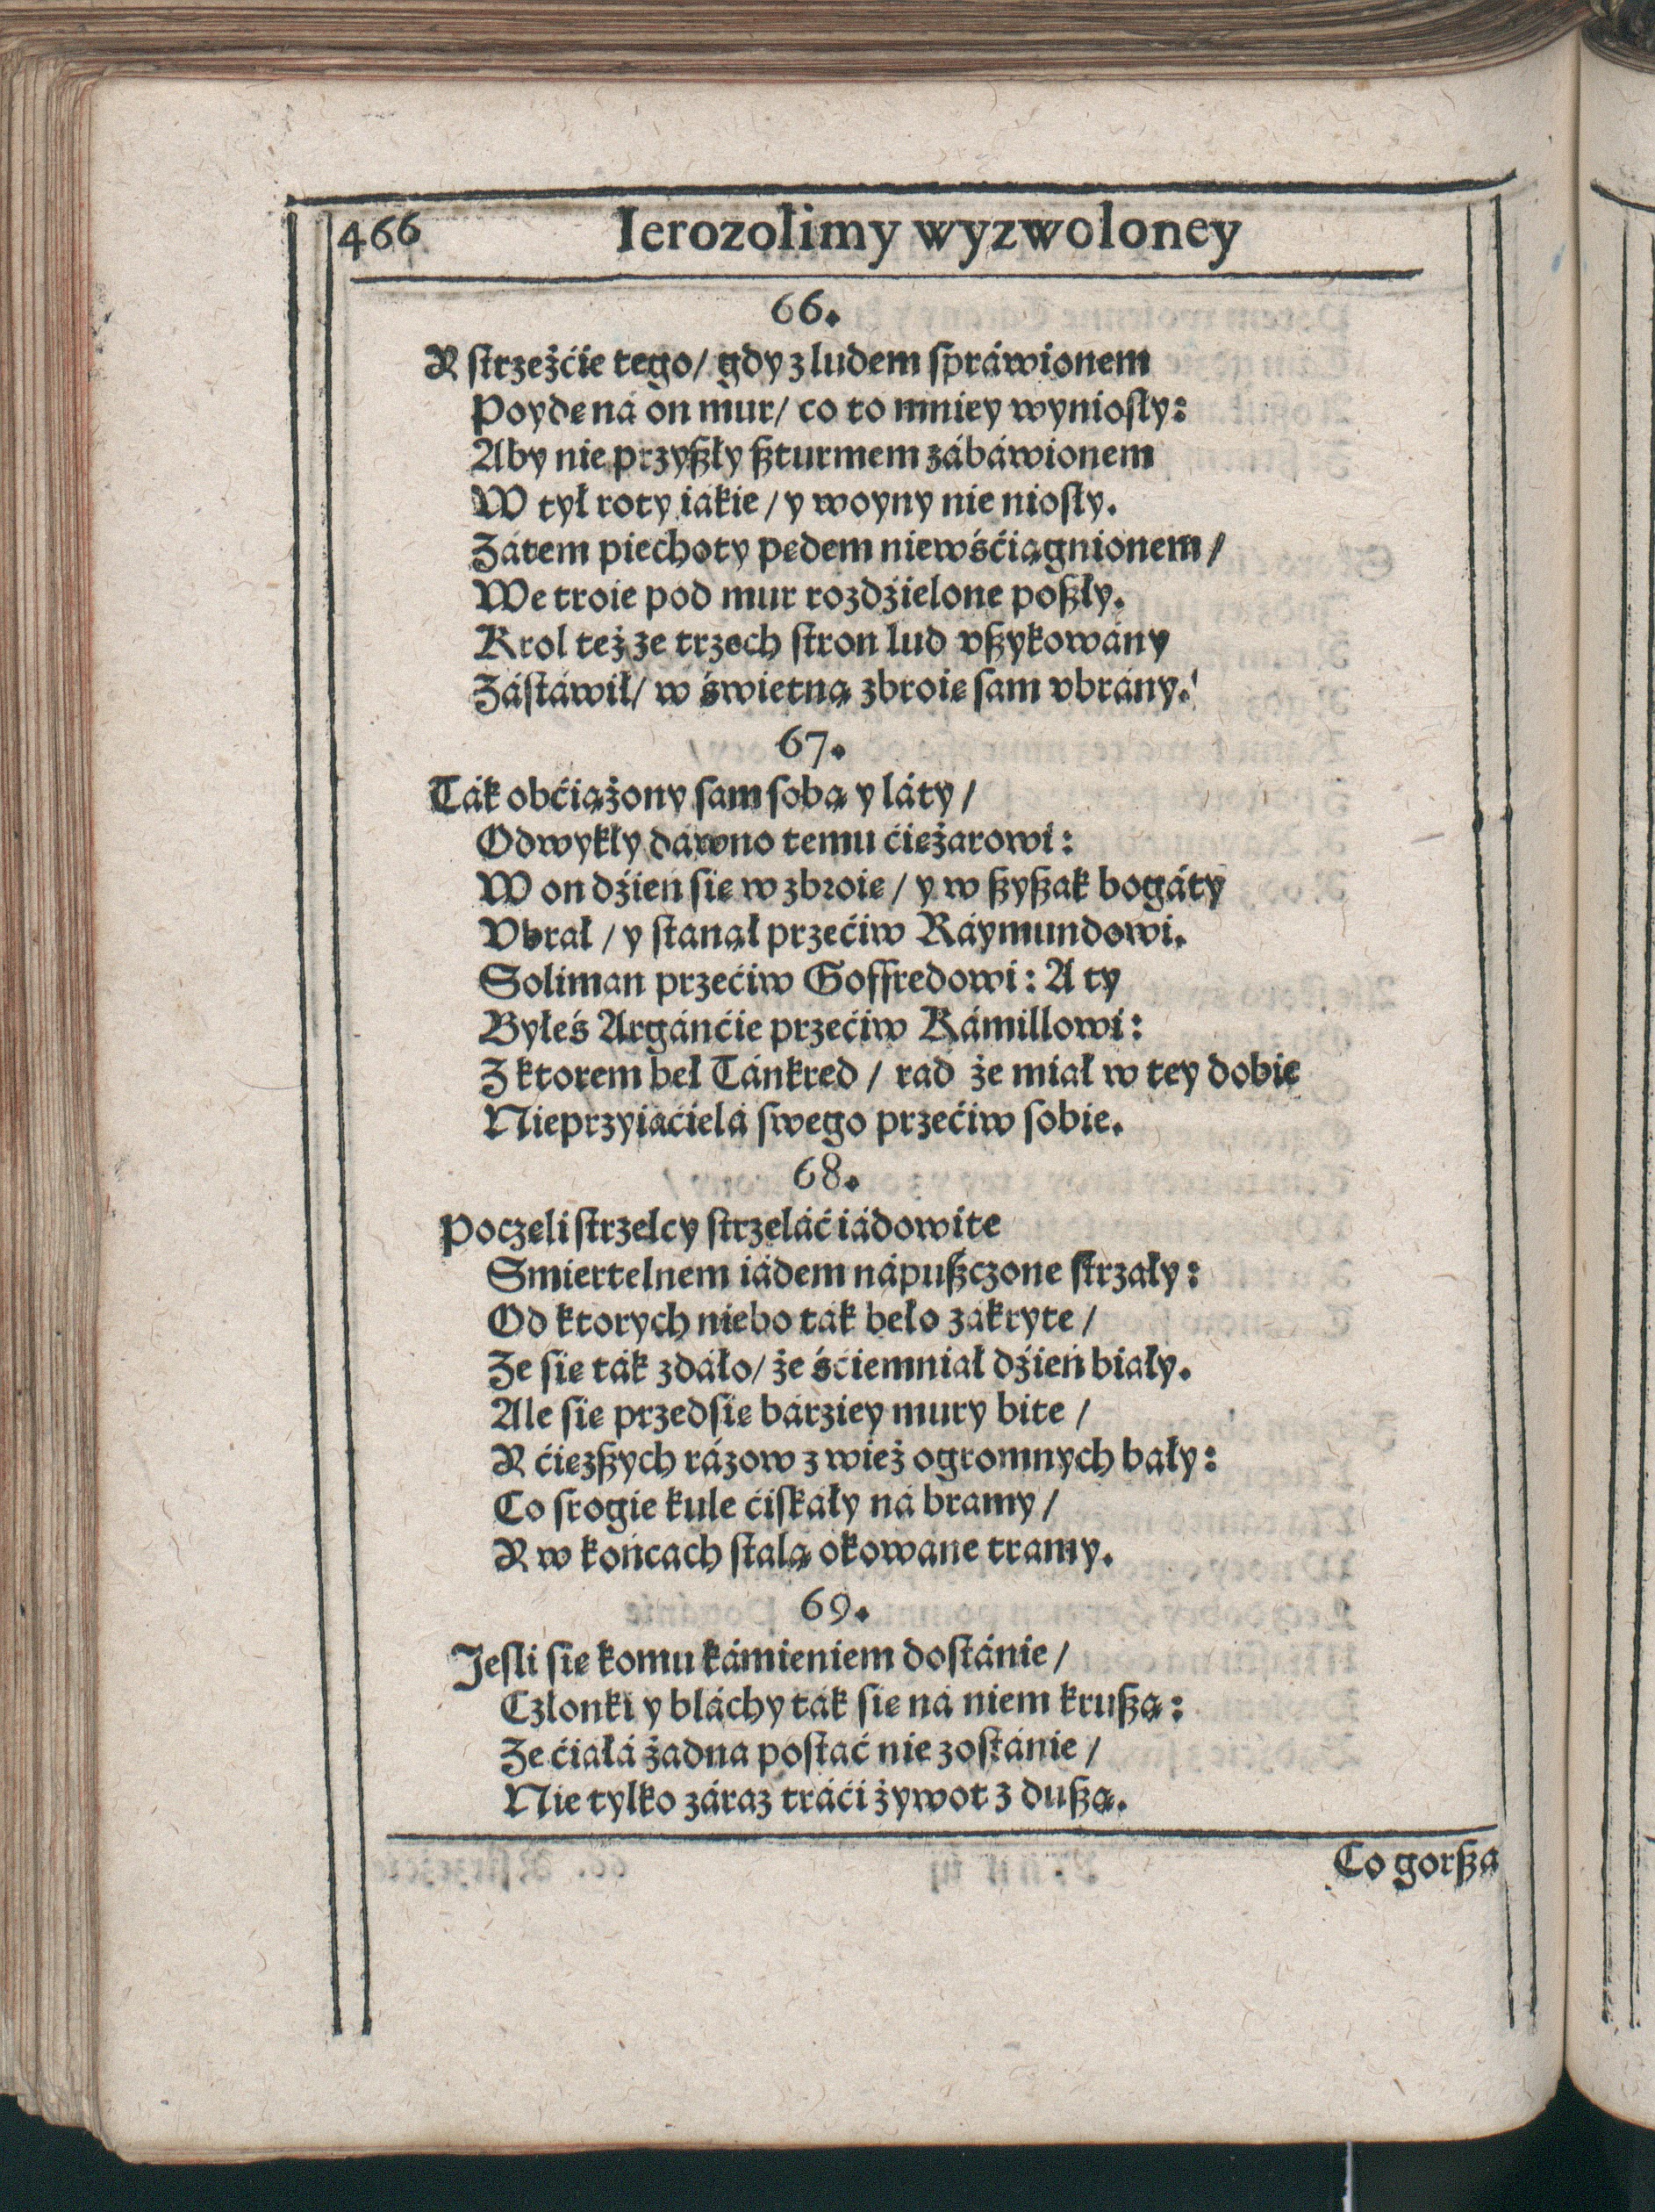 466 Ierozolimy wyzwoloney
66.
Y strzeżćie tego/ gdy z ludem spráwionem
Poydę ná on mur/ co to mniey wyniosły:
Aby nie przyszły szturmem zábáwionem
W tył roty iákie/ y woyny nie niosły.
Zátem piechoty pędem niewśćiągnionem/
We troie pod mur rozdźielone poszły.
Krol też ze trzech stron lud vszykowány
Zástáwił/ w świetną zbroię sam vbrány.
67.
Ták obćiążony sam sobą y láty/
Odwykły dawno temu ćiężarowi:
W on dźień się w zbroię/ y w szyszak bogáty
Vbrał/ y stanął przećiw Ráymundowi.
Soliman przećiw Goffredowi: A ty
Byłeś Argánćie przećiw Kámillowi:
Z ktorem beł Tánkred/ rad że miał w tey dobie
Nieprzyiaćielá swego przećiw sobie.
68.
Poczęli strzelcy strzeláć iádowite
Smiertelnem iádem nápuszczone strzały:
Od ktorych niebo ták beło zákryte/
Ze się ták zdáło/ że śćiemniał dźień biały.
Ale się przedsię bárziey mury bite/
Y ćięzszych rázow z wież ogromnych bały:
Co srogie kule ćiskáły ná bramy/
Y w końcach stalą okowane tramy.
69.
Jesli się komu kámieniem dostánie/
Członki y bláchy ták się ná niem kruszą:
Ze ćiáłá żadna postać nie zostánie/
Nie tylko záraz tráći żywot z duszą.
Co gorsza